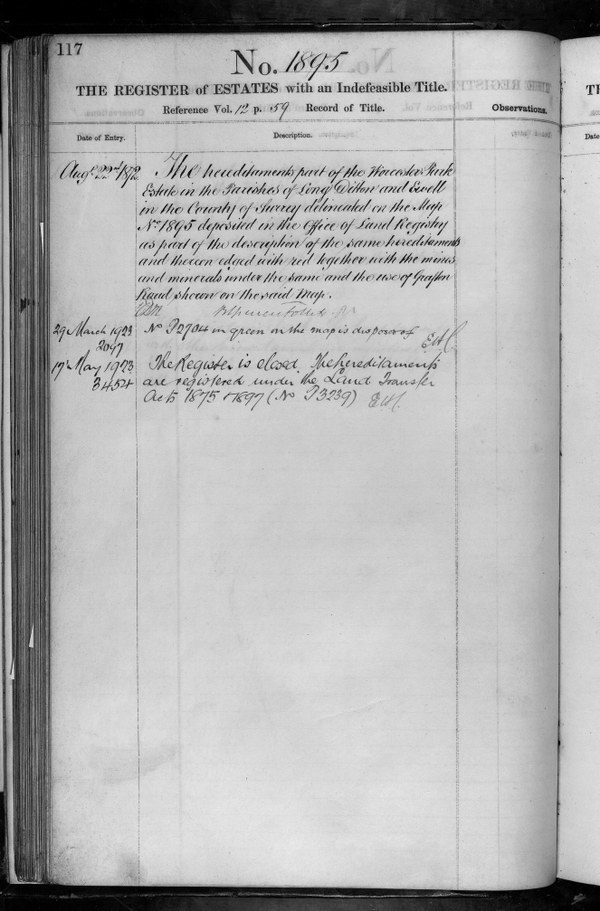 117
No. 1895
THE REGISTER of ESTATES with an Indefeasible Title.
Reference Vol. 12 p. 59 Record of Title.
Observations.
Date of Entry.
Description.
Augt 22nd 1872 The hereditaments part of the Worcester Park
Estate in the Parishes of Long Ditton and Ewell
in the County of Surrey delineated on the Map
No 1895 deposited in the Office of Land Registry
as part of the description of the same hereditaments
and thereon edged with red together with the mines
and minerals under the same and the use of Grafton
Road shewn on the said Map.
29 March 1923 No P2704 in green on the map is disposed of
2097
17th May 1923 The Register is closed. The hereditaments
3454 are registered under the Land Transfer
Acts 1875 & 1897 (No P3239)